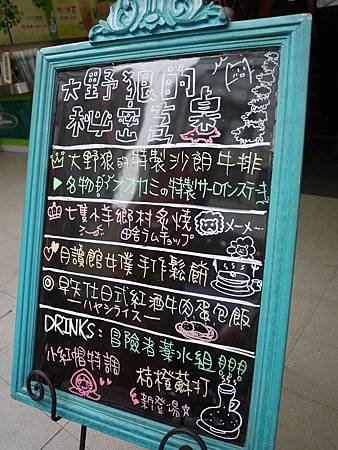 大野狼的
秘密餐桌
大野狼的特製沙朗牛排
名物 オオカミの特製サーロインステーキ
七隻小羊鄉村炙燒
田舎ラムチョップ メーメー
月讀館女僕手作鬆餅
早矢仕日式紅酒牛肉蛋包飯
ハヤシライス
DRINKS: 冒險者藥水組
小紅帽特調
桔橙蘇打
新登場☆